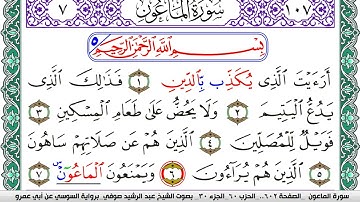 ٧ سُورَةُ المَاعُونِ ١٠٧
بِسْمِ اللَّهِ الرَّحْمَٰنِ الرَّحِيمِ ٥
أَرَءَيْتَ الَّذِى يُكَذِّب بِّالدِّينِ ١ فَذَٰلِكَ الَّذِى
يَدُعُّ الْيَتِيمَ ٢ وَلَا يَحُضُّ عَلَىٰ طَعَامِ الْمِسْكِينِ ٣
فَوَيْلٌ لِّلْمُصَلِّينَ ٤ الَّذِينَ هُمْ عَن صَلَاتِهِمْ سَاهُونَ
٥ الَّذِينَ هُمْ يُرَاءُونَ ٦ وَيَمْنَعُونَ الْمَاعُونَ ٧
سورة الماعون _ الصفحة ٦٠٢.. الحزب ٦٠_الجزء ٣٠ _ بصوت الشيخ عبد الرشيد صوفي _ برواية السوسي عن أبي عمرو